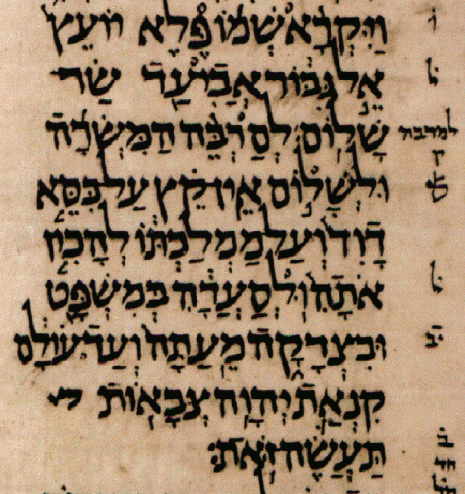 וַיִּקְרָא שְׁמוֹ פֶּלֶא יוֹעֵץ
אֵל גִּבּוֹר אֲבִי עַד שַׂר
שָׁלוֹם׃ לםַרְבֵּה הַמִּשְׂרָה
וּלְשָׁלוֹם אֵין קֵץ עַל כִּסֵּא
דָוִד וְעַל מַמְלַכְתּוֹ לְהָכִין
אֹתָהּ וּלְסַעֲדָהּ בְּמִשְׁפָּט
וּבִצְדָקָה מֵעַתָּה וְעַד עוֹלָם
קִנְאַת יְהוָה צְבָאוֹת
תַּעֲשֶׂה זֹּאת׃